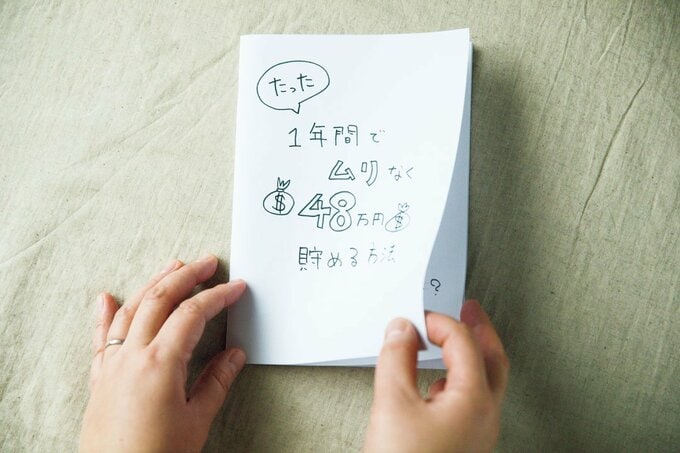 たった
1年間で
ムリなく
$ 48万円 $
貯める方法
?